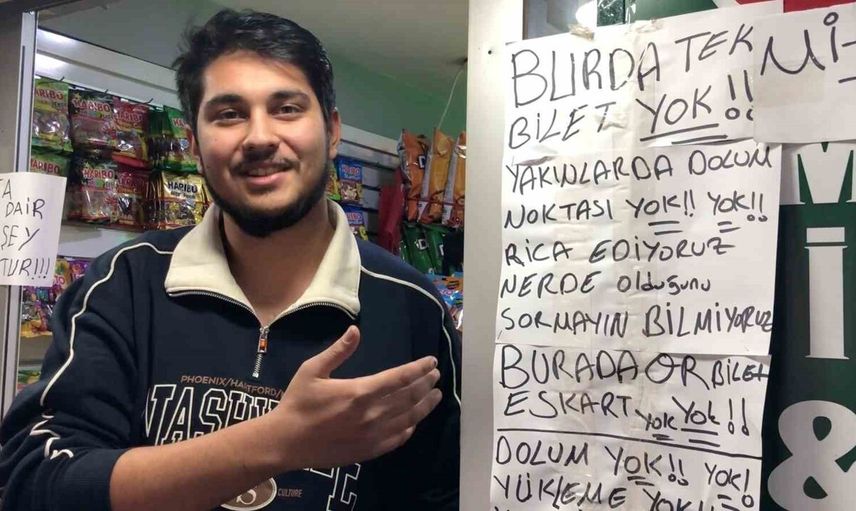 BURDA TEK
BİLET YOK!!
YAKINLARDA DOLUM
NOKTASI YOK!! YOK!!
RICA EDİYORUZ
NERDE OLDUĞUNU
SORMAYIN BİLMİYORUZ
BURADA QR BİLET
ESKART YOK YOK!!
DOLUM YOK!! YOK!
YÜKLEME YOK!!
Mİ
DAİR
ŞEY
TUR!!!
M
İ
&
HARIBO
HARIBO
HARIBO
HARIBO
PHOENIX/HARTFORD/
NASHVILLE
CULTURE